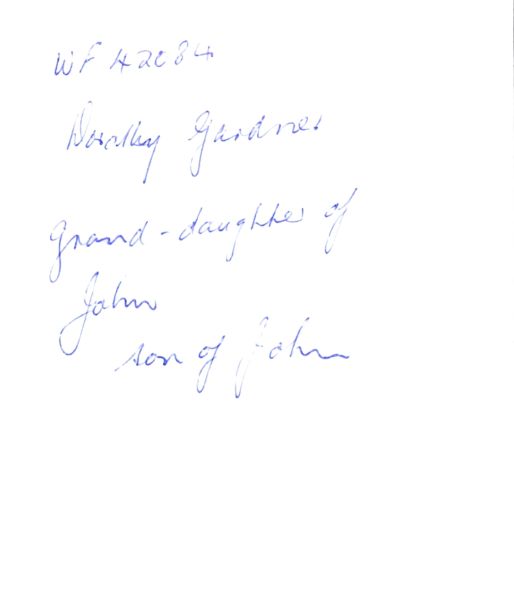 WF 42C84
Dorothy Gardner
Grand-daughter of
John
son of John